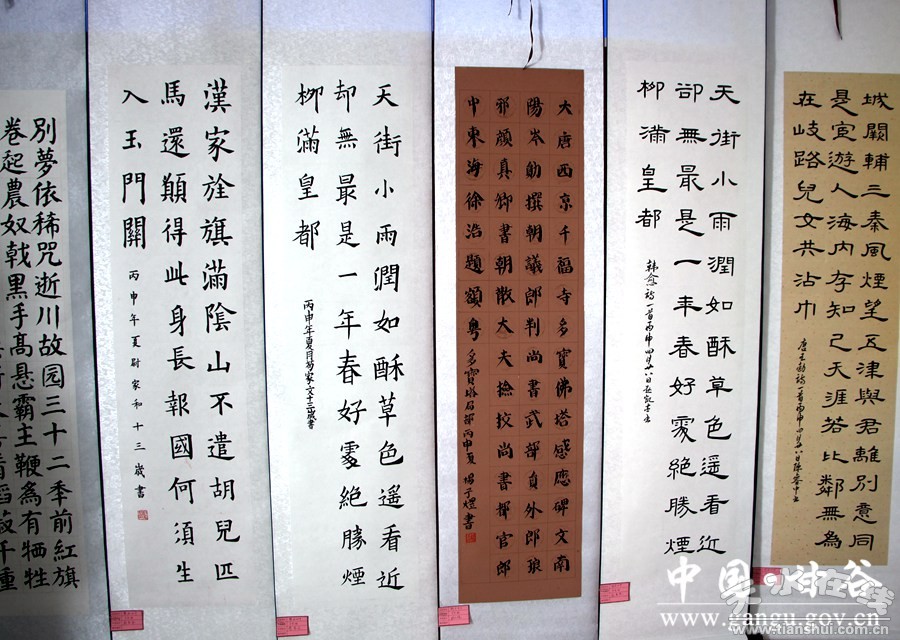 城闕輔三秦風煙望五津與君離別意同
是宦遊人海内存知己天涯若比鄰無為
在岐路兒女共沾巾
唐王勃詩一首丙申四月廿八日
天街小雨潤如酥草色遥看近
卻無最是一年春好處絕勝煙
柳滿皇都
韓愈詩一首丙申四月廿八日
大唐西京千福寺多寶佛塔感應碑文南
陽岑勛撰朝議郎判尚書武部員外郎琅
邪顏真卿書朝散大夫撿挍尚書都官郎
中東海徐浩題額粤
多寶塔局部丙申夏
書
天街小雨潤如酥草色遙看近
却無最是一年春好處絕勝煙
柳滿皇都
丙申年夏月苟家文十三歲書
漢家旌旗滿陰山不遣胡兒匹
馬還願得此身長報國何須生
入玉門關
丙申年夏尉家和十三歲書
別夢依稀咒逝川故园三十二年前紅旗
卷起農奴戟黑手高悬霸主鞭為有牺牲
中国·甘谷
www.gangu.gov.cn
天水在线
www.tianshui.com.cn